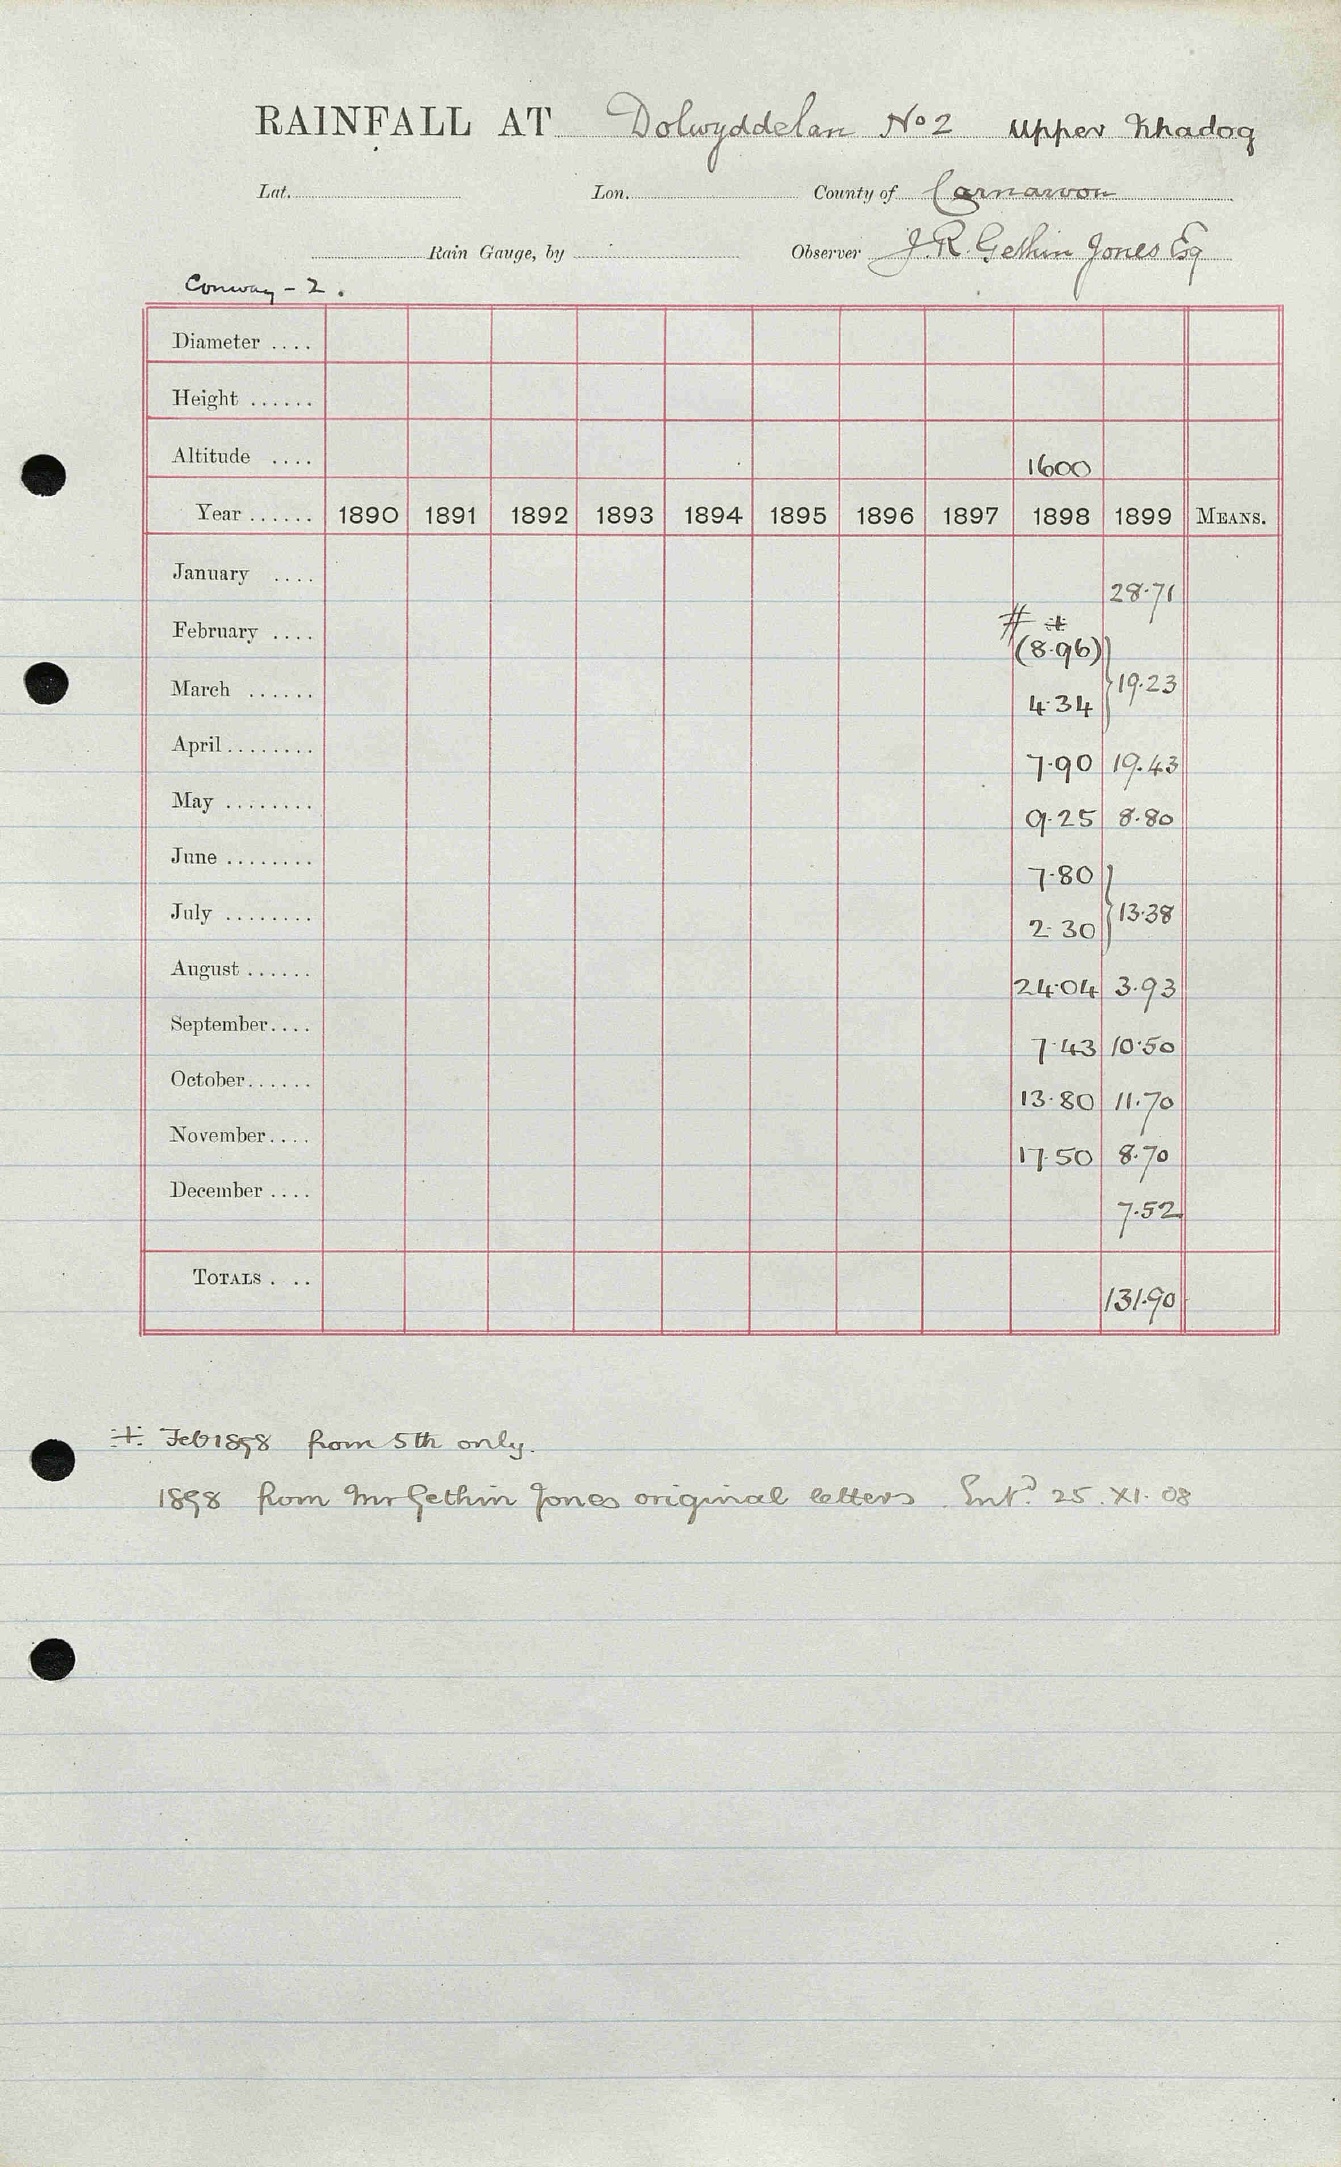 RAINFALL AT Dolwyddelan No 2 Upper
Lat. Lon. County of Carnarvon
Rain Gauge, by Observer J. R. Gethin Jones Esq
Conway - 2.
Diameter ....
Height ......
Altitude .... 1600
Year ...... 1890 1891 1892 1893 1894 1895 1896 1897 1898 1899 MEANS.
January .... 28.71
February .... # ‡ (8.96)
March ...... 4.34 } 19.23
April ........ 7.90 19.43
May ........ 9.25 8.80
June ........ 7.80
July ........ 2.30 } 13.38
August ...... 24.04 3.93
September .... 7.43 10.50
October ...... 13.80 11.70
November .... 17.50 8.70
December .... 7.52
TOTALS . .. 131.90
‡ Feb 1898 from 5th only.
1898 from Mr Gethin Jones original letters Entd 25.XI.08